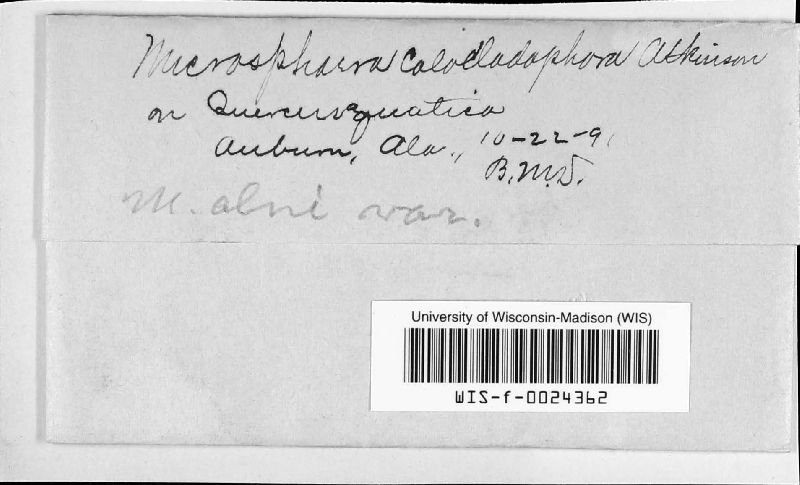 Microsphaera calocladophora Atkinson
on Quercus aquatica
Auburn, Ala., 10-22-91
B.M.D.
M. alni var.
University of Wisconsin-Madison (WIS)
WIS-f-0024362